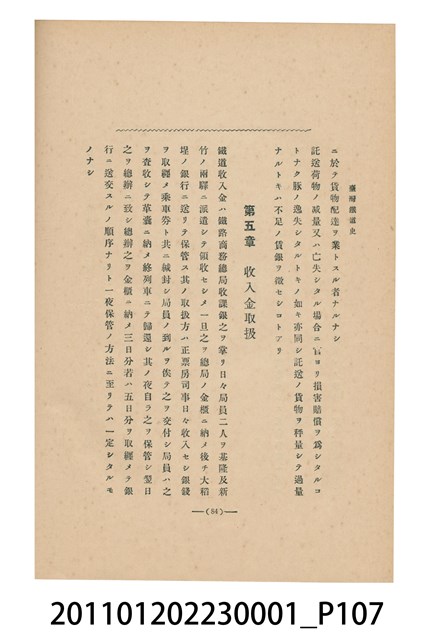 臺灣鐵道史
ニ於テ貨物配達ヲ業トスル者ナルナシ
託送荷物ノ減量又ハ亡失シタル場合ニ官ヨリ損害賠償ヲ爲シタルコ
トナク豚ノ逸失シタルトキノ如キ亦同シ託送ノ貨物ヲ秤量シテ過量
ナルトキハ不足ノ賃銀ヲ徵セシコトアリ
第五章 收入金取扱
鐵道收入金ハ鐵路商務總局收課銀之ヲ掌リ日々局員二人ヲ基隆及新
竹ノ兩驛ニ派遣シテ領收セシメ一旦之ヲ總局ノ金櫃ニ納メ後チ大稻
埕ノ銀行ニ送リテ保管ス其ノ取扱方ハ正票房司事日々收入セシ銀錢
ヲ取纒メ乘車券ト共ニ緘封シ局員ノ到ルヲ俟テ之ヲ交付シ局員ハ之
ヲ査收シテ革囊ニ納メ終列車ニテ歸還シ其ノ夜自ラ之ヲ保管シ翌日
之ヲ總辦ニ致シ總辦之ヲ金櫃ニ納メ三日分若ハ五日分ヲ取纒メテ銀
行ニ送交スルノ順序ナリト一夜保管ノ方法ニ至リテハ一定シタルモ
ノナシ
(84)
201101202230001_P107